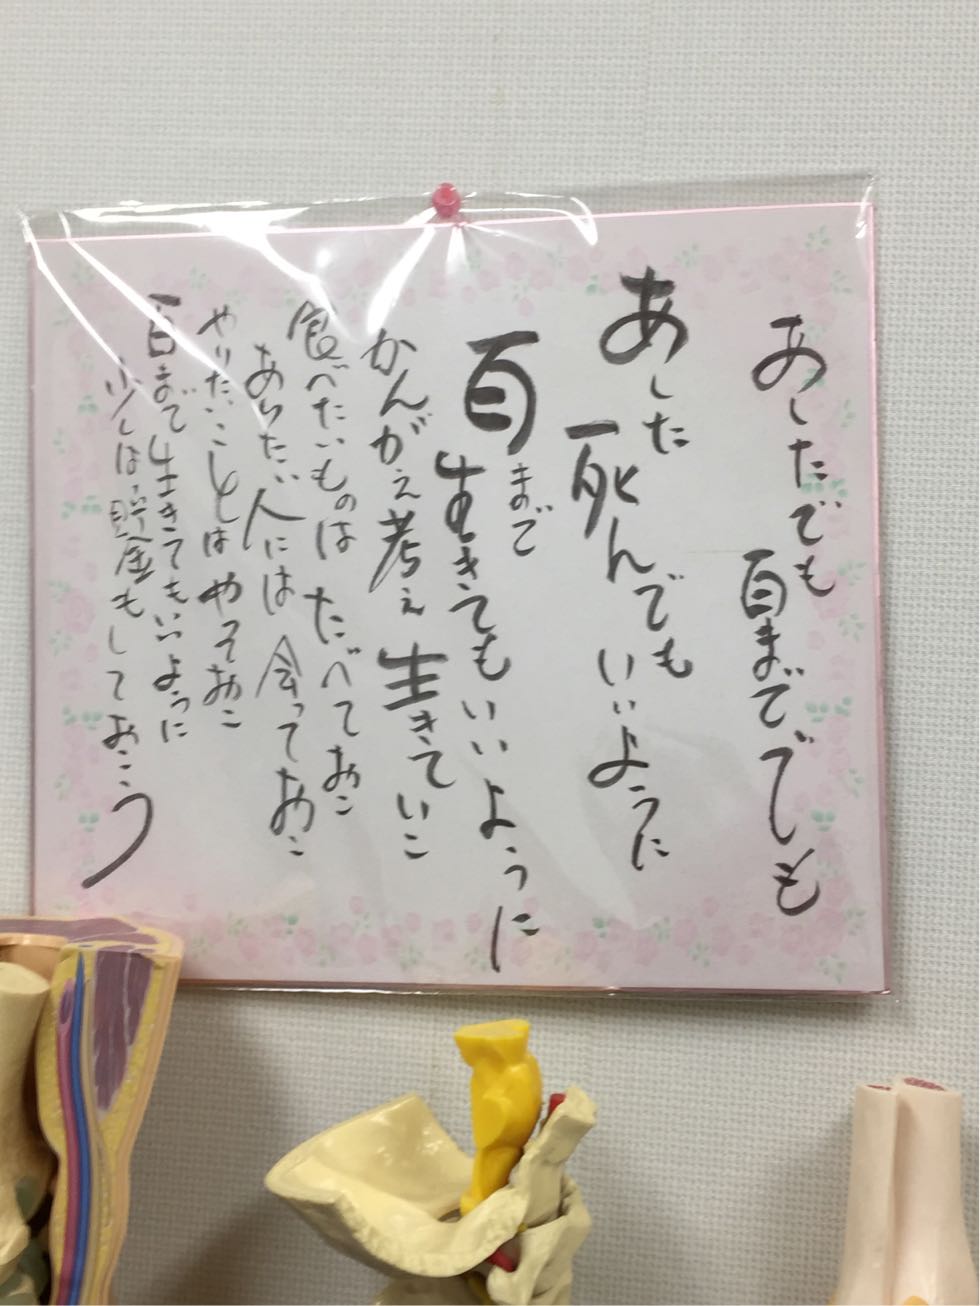 あしたでも
百まででも
あした
死んでも
いいように
百まで
生きてもいいように
かんがえ考え生きていこ
食べたいものはたべておこ
あいたい人には会っておこ
やりたいことはやっておこ
百まで生きてもいいように
少しは貯金もしておこう